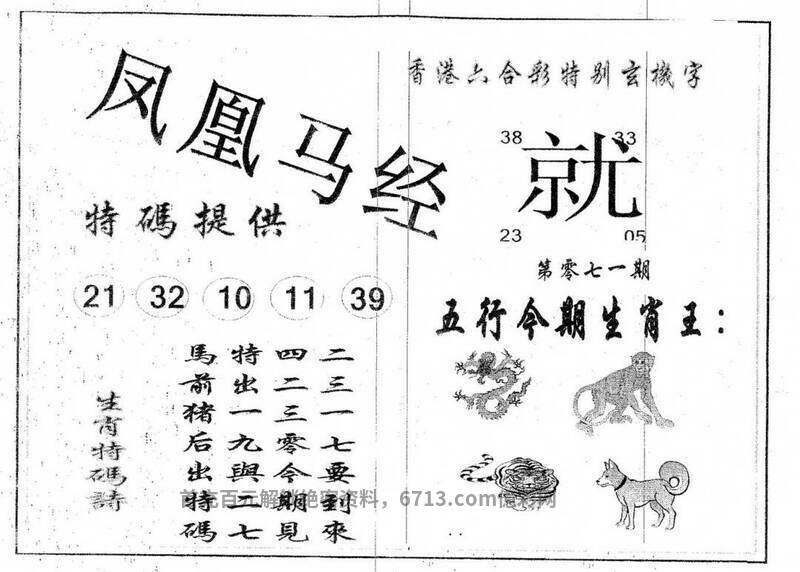 凤凰马经
特碼提供
21 32 10 11 39
生肖特碼詩
二三一七要到來
四二三零今期見
特出一九與二七
馬前猪后出特碼
香港六合彩特别玄機字
38 33
就
23 05
第零七一期
五行今期生肖王：
首充百元解锁绝密资料，6713.com